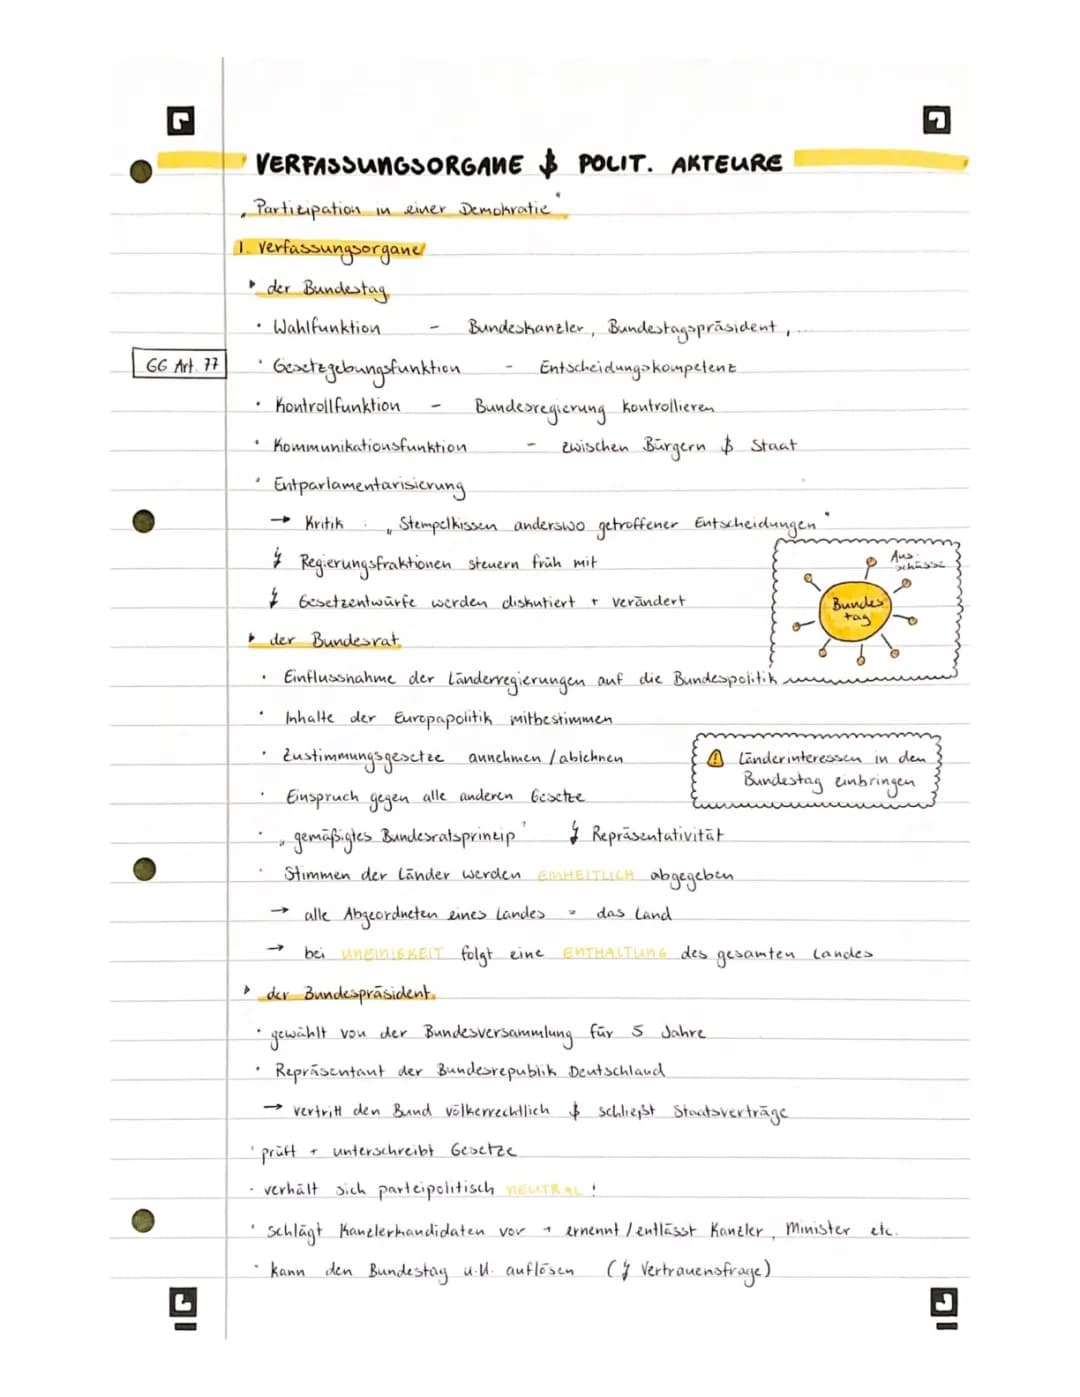 VERFASSUNGSORGANE & POLIT. AKTEURE
„Partizipation in einer Demokratie"
1. Verfassungsorgane
▸ der Bundestag
· Wahlfunktion - Bundeskanzler, Bundestagspräsident, ...
GG Art. 77
· Gesetzgebungsfunktion - Entscheidungskompetenz
· Kontrollfunktion - Bundesregierung kontrollieren
· Kommunikationsfunktion - zwischen Bürgern & Staat
· Entparlamentarisierung
→ Kritik: „Stempelkissen anderswo getroffener Entscheidungen"
↯ Regierungsfraktionen steuern früh mit
↯ Gesetzentwürfe werden diskutiert + verändert
Aus-
schüsse
Bundes
tag
▸ der Bundesrat
· Einflussnahme der Länderregierungen auf die Bundespolitik
· Inhalte der Europapolitik mitbestimmen
· Zustimmungsgesetze annehmen / ablehnen
· Einspruch gegen alle anderen Gesetze
⚠ Länderinteressen in den
Bundestag einbringen
· „gemäßigtes Bundesratsprinzip" ↯ Repräsentativität
· Stimmen der Länder werden EINHEITLICH abgegeben
→ alle Abgeordneten eines Landes = das Land
→ bei UNEINIGKEIT folgt eine ENTHALTUNG des gesamten Landes
▸ der Bundespräsident
· gewählt von der Bundesversammlung für 5 Jahre
· Repräsentant der Bundesrepublik Deutschland
→ vertritt den Bund völkerrechtlich & schließt Staatsverträge
· prüft + unterschreibt Gesetze
· verhält sich parteipolitisch NEUTRAL!
· schlägt Kanzlerkandidaten vor + ernennt / entlässt Kanzler, Minister etc.
· kann den Bundestag u.U. auflösen (↯ Vertrauensfrage)